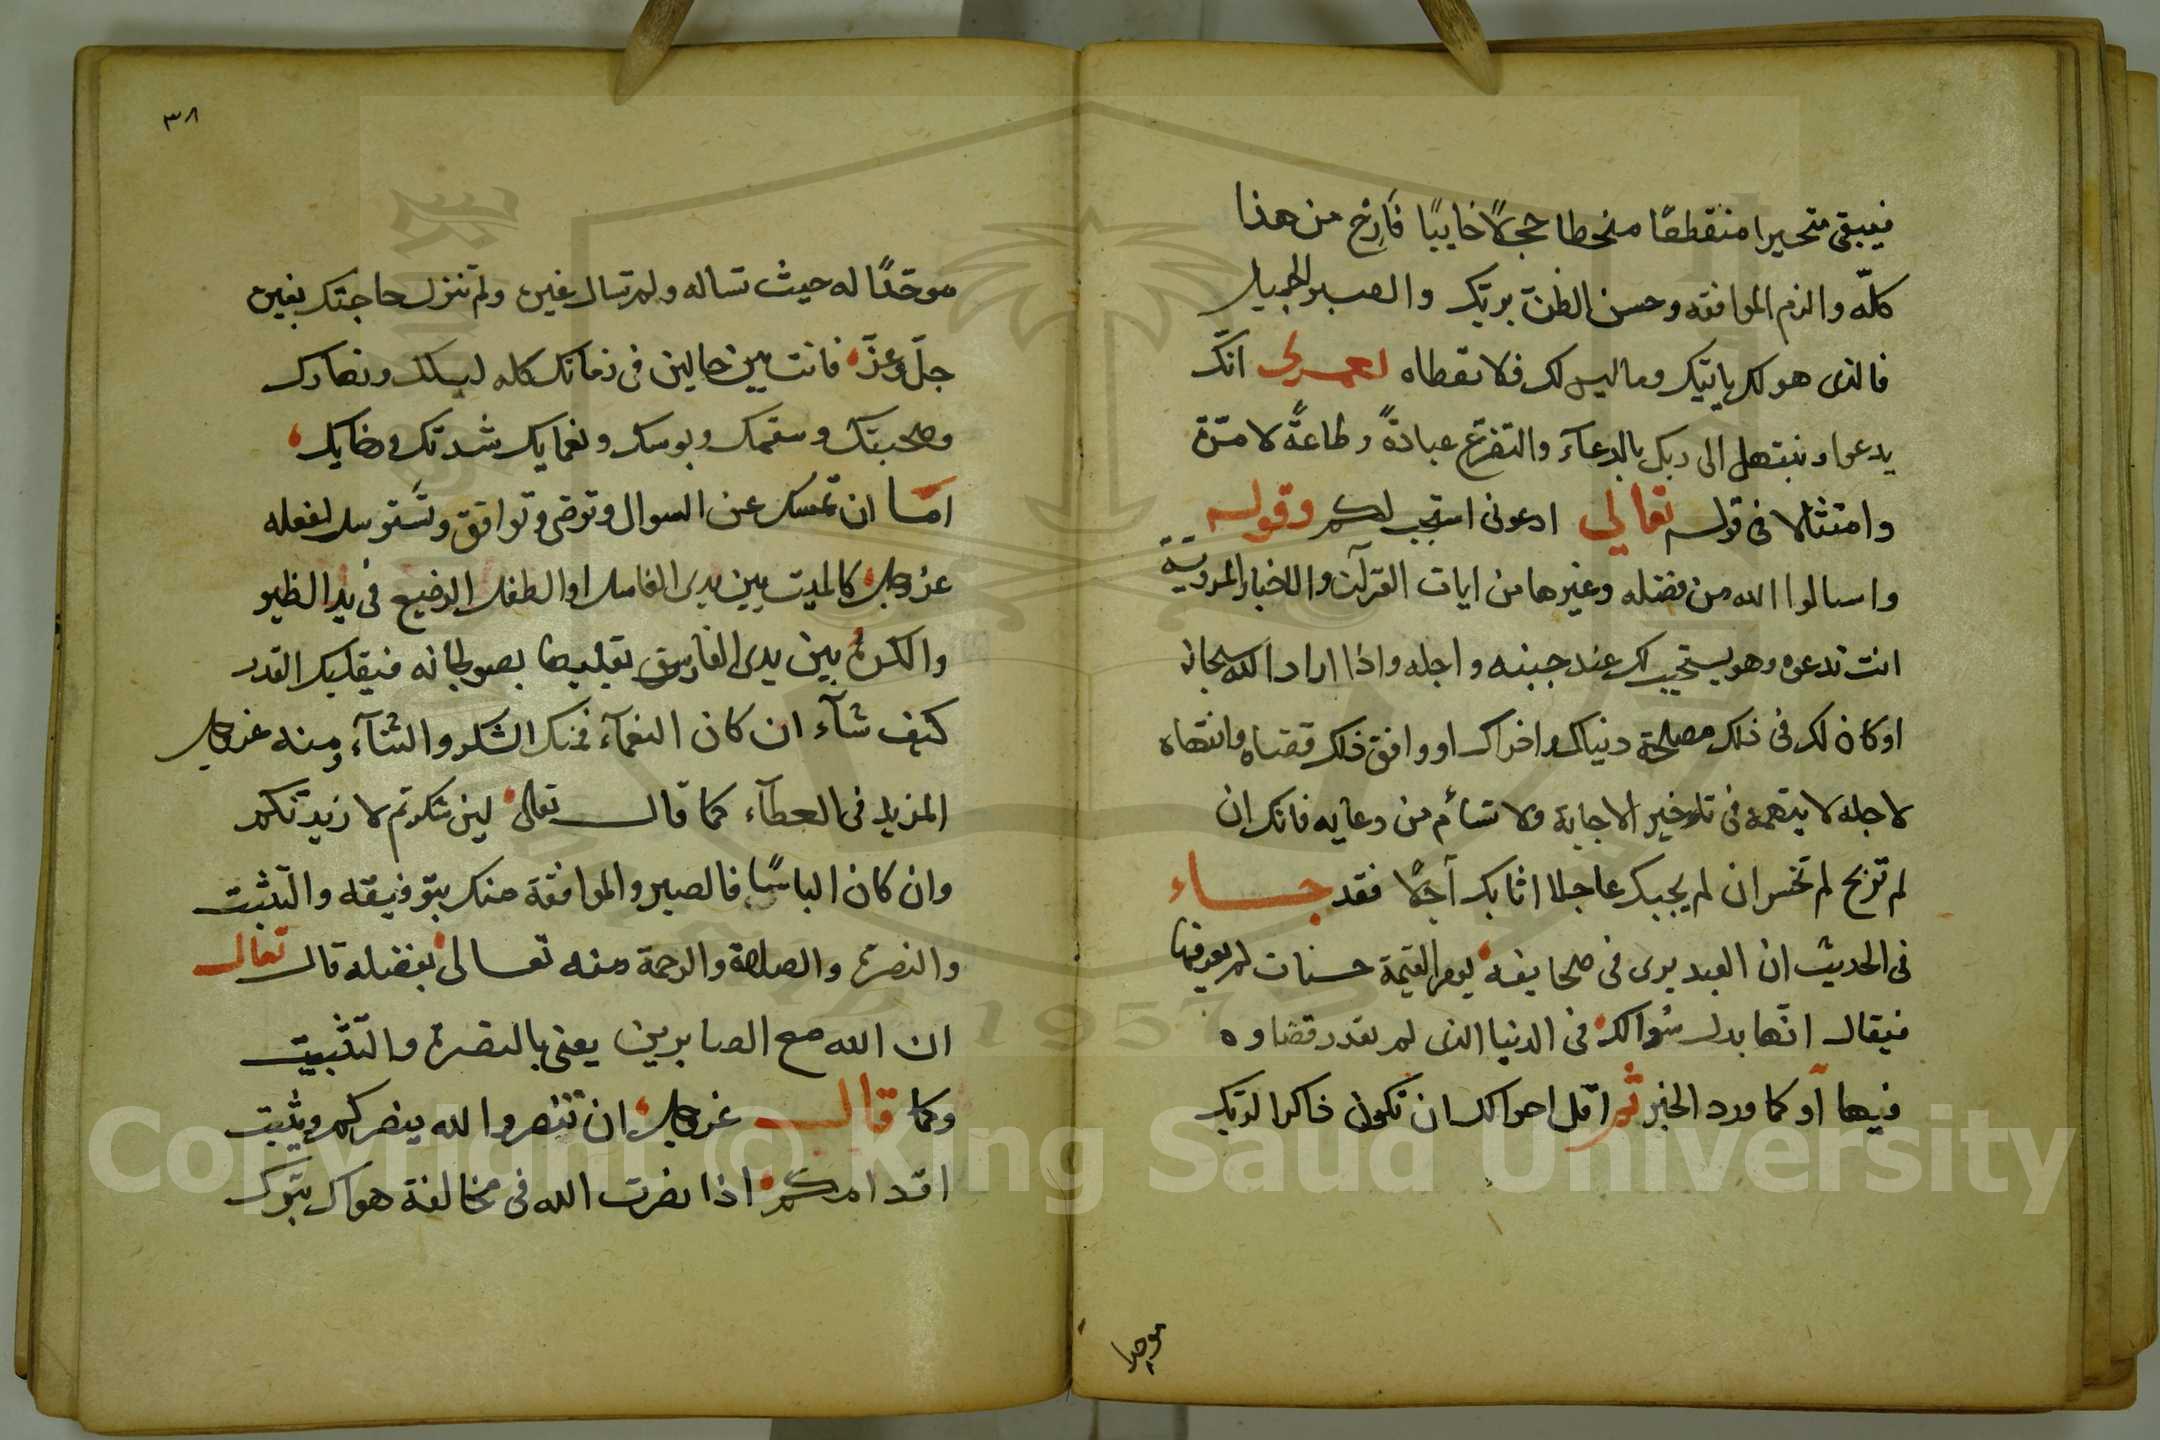 فيبقى متحيرا منقطعًا منخطا خجلًا خايبًا فَارِح من هذا
كلّه والزم الموافقه وحسن الظنّ بربّك والصبر الجميل
فالذى هو لك ياتيك وما ليس لك فلا تعطاه لعمرى انّك
يدعوا وتبتهل الى ربك بالدعآء والتضرّع عبادةً وطاعةً لا متن
وامتثالا فى قوله تعالي ادعونى استجب لكم وقوله
واسالوا الله من فضله وغيرها من ايات القرآن والاخبار المرويّة
انت تدعوه وهو يستجيب لك عند حينه واجله واذا اراد الله سبحانه
او كان لك فى ذلك مصلحة دنياك واخراك او وافق ذلك قضاه وانتهاه
لاجله لا يتهمه فى تاخير الاجابة ولا تسأم من دعايه فانك ان
لم تربح لم تخسر ان لم يجبك عاجلا اثابك آجلًا فقد جاء
فى الحديث ان العبد يرى فى صحايفه يوم القيمة حسنات لم يعرفها
فيقال انّها بدل سُوالك فى الدنيا الذى لم يقدر قضاوه
فيها أو كما ورد الخبر ثم اقل احوالك ان تكون ذاكرا لربّك
موحدا
٣٨
موحّدًا له حيث تساله ولم تسال غيره ولم تنزل حاجتك بغيره
جلّ وعزّ فانت بين حالين فى زمانك كله ليلك ونهارك
وصحبتك وسقمك وبوسك ونعمايك شدتك ورخايك
امّا ان تمسك عن السوال وترضى وتوافق وتَستَرسل لفعله
عزوجل كالميت بين يدى الغاسل او الطفل الرضيع فى يد الظير
والكرة بين يدى الفارس تقلبها بصولجانه فيقلبك القدر
كيف شآء ان كان النعمآء فمنك الشكر والثنآء ومنه عزوجل
المزيد فى العطآء كما قال تعالى لين شكرتم لازيدنّكم
وان كان الباسًا فالصبر والموافقة منك بتوفيقه والتثبت
والنصرة والصلاة والرحمة منه تعالى بفضله قال تعالى
ان الله مع الصابرين يعنى بالنصرة والتثبيت
وكما قال عزوجل ان تنصروا الله ينصركم ويثبت
اقدامكم اذا نصرت الله فى مخالفة هواك بترك